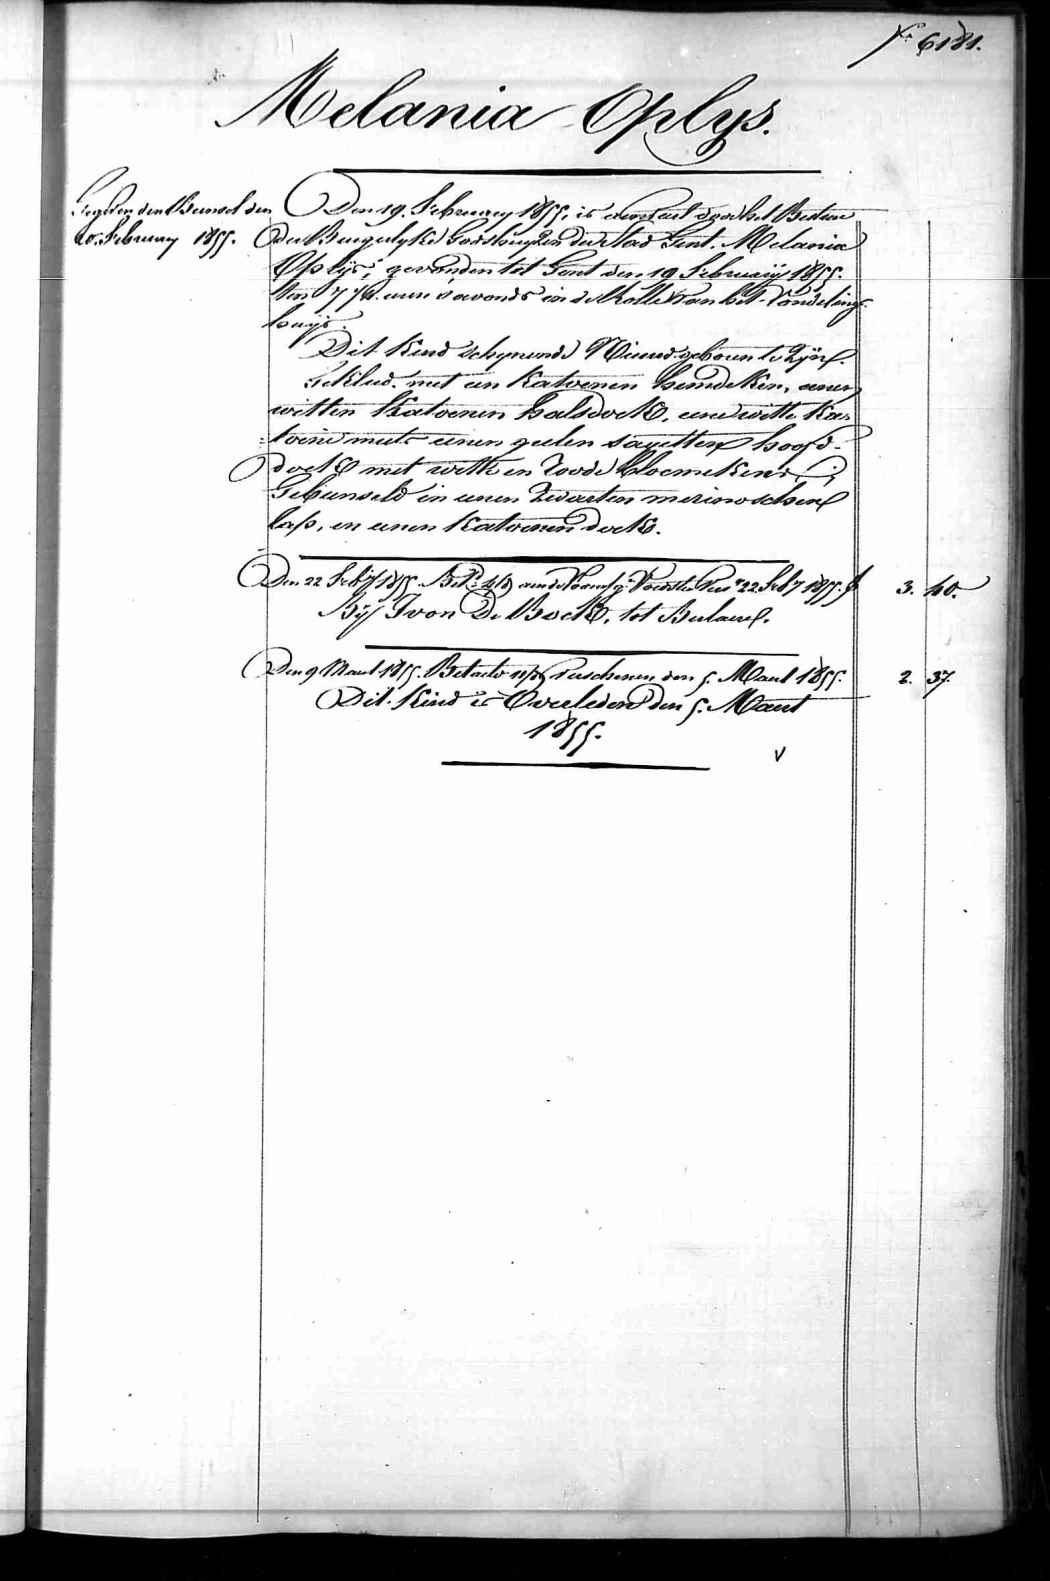 N.º 6181.
Melania Oplys.
Gegeven den Bunsel den
20. February 1855.
Den 19. February 1855, is aenveerd door het Bestuer
der Burgerlyke Godshuyzen der Stad Gent. Melania
Oplÿs, gevonden tot Gent den 19 February 1855.
ten 7 uren s'avonds in de Rolle van het Vondeling-
huys.
Dit Kind schynende Nieuw-geboren te Zyn.
Gekleed met een Katoenen hemdeken, eenen
witten Katoenen halsdoek, eene witte Ka-
toene muts eenen geelen sayetten hoofd-
doek met witte en Roode bloemekens;
Gebunseld in eenen Zwarten merinoschen
lap, en eenen Katoenen doek.
Den 22 Feb.y 1855. Bet. aen de Voedster 22 Feb.y 1855. f 3. 40.
Bÿ Ivon De Bock, tot Berlaere.
Den 9 Maert 1855. Betaeld verschenen den 5. Maert 1855. 2. 37.
Dit Kind is Overleden den 5. Maert
1855.